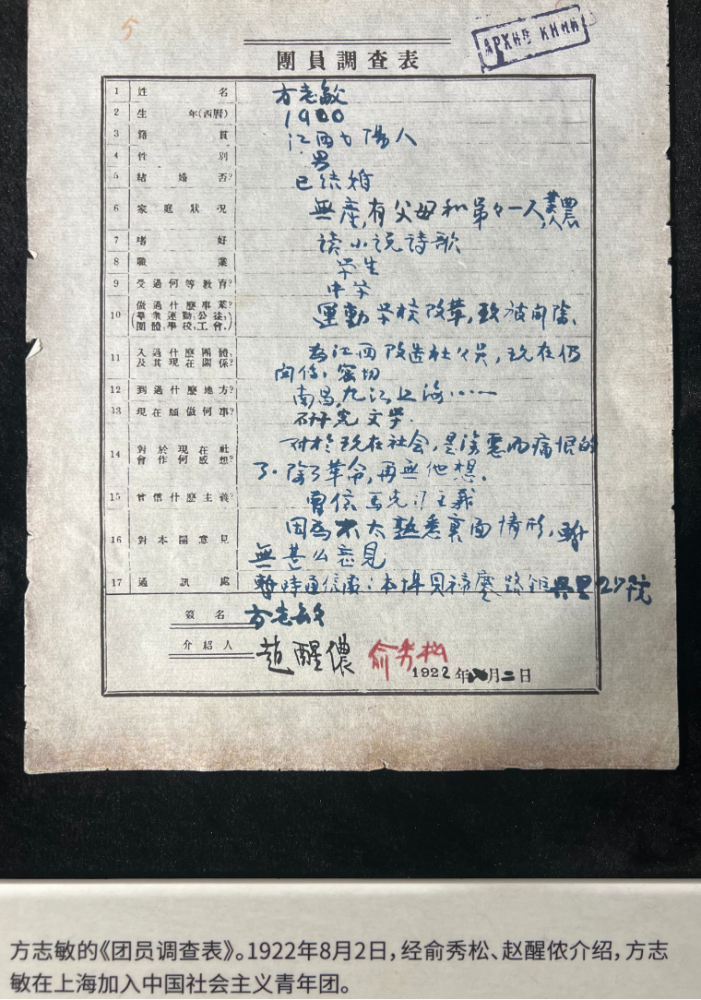 5
АРХИВ КИМИ
團員調查表
1 姓名 方志敏
2 生年(西曆) 1900
3 籍貫 江西弋陽人
4 性別 男
5 結婚否? 已结婚
6 家庭狀況 無產,有父母和弟々一人,業農
7 嗜好 读小说詩歌
8 職業 学生
9 受過何等教育? 中学
10 做過什麼事業?(羣衆運動,公益,團體,學校,工會,) 運動学校改革,致被開除.
11 入過什麼團體,及其現在關係? 爲江西改造社々員,现在仍
関係,密切
12 到過什麼地方? 南昌,九江上海……
13 現在傾做何事? 研究文学.
14 對於現在社會作何感想? 对於现在社会,是涂惡而痛恨的
了.除了革命,再無他想.
15 曾信什麼主義? 曾信馬克斯主義
16 對本團意見 因為不太熟悉裏面情形,
無甚么意見
17 通訊處 暫時通信處:本埠貝禘鏖路 27號
簽名 方志敏
介紹人 趙醒儂 俞秀松
1922年八月二日
方志敏的《团员调查表》。1922年8月2日,经俞秀松、赵醒侬介绍,方志
敏在上海加入中国社会主义青年团。